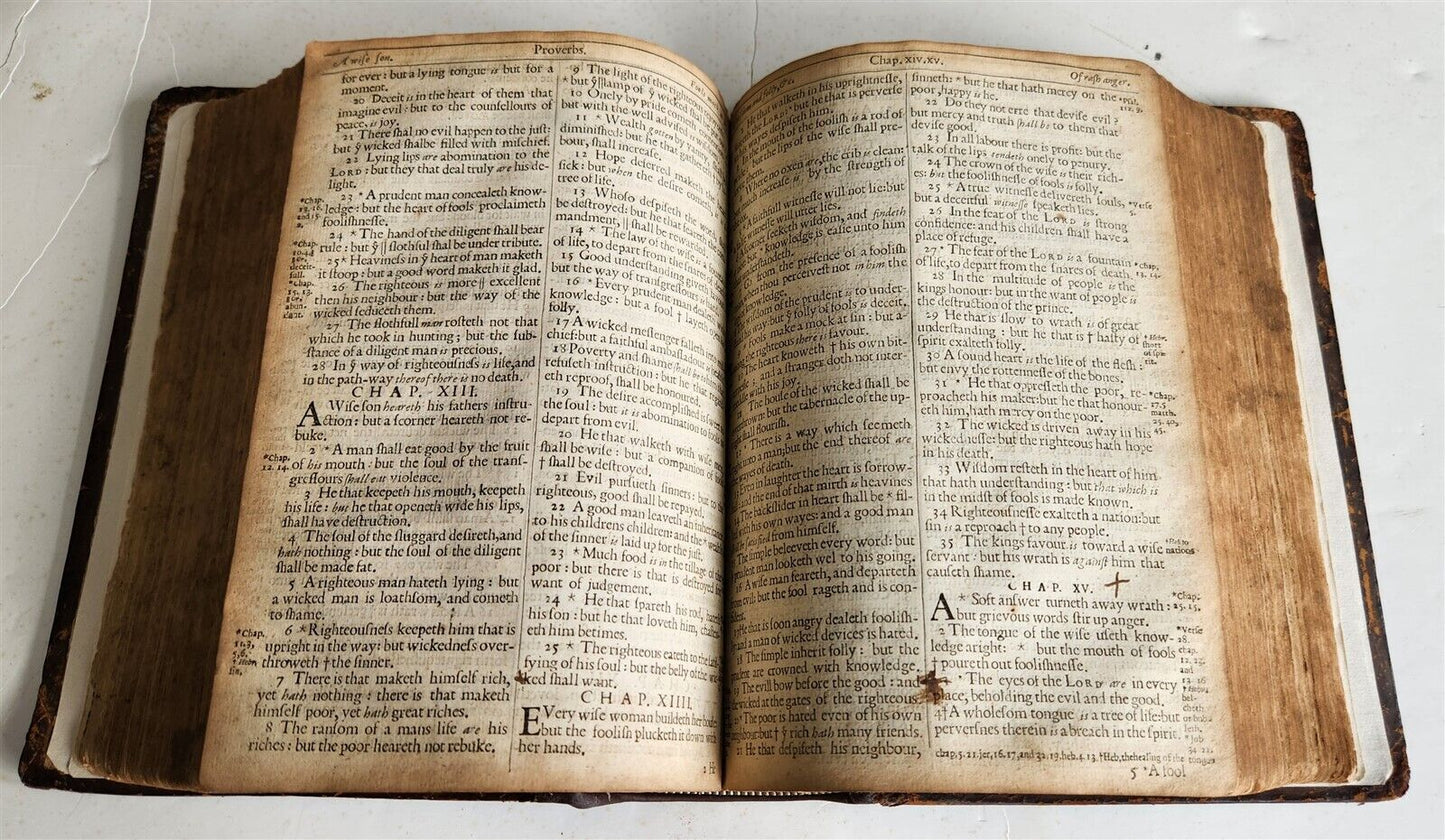 A wise son.
Proverbs.
for ever: but a lying tongue is but for a
moment.
20 Deceit is in the heart of them that
imagine evil: but to the counsellours of
peace, is joy.
21 There shal no evil happen to the just:
but ẏ wicked shalbe filled with mischief.
22 Lying lips are abomination to the
LORD: but they that deal truly are his de-
light.
23 * A prudent man concealeth know-
ledge: but the heart of fools proclaimeth
foolishnesse.
24 * The hand of the diligent shall bear
rule: but ẏ || slothful shal be under tribute.
25 * Heaviness in ẏ heart of man maketh
it stoop: but a good word maketh it glad.
26 The righteous is more || excellent
then his neighbour: but the way of the
wicked seduceth them.
27 The slothfull man rosteth not that
which he took in hunting; but the sub-
stance of a diligent man is precious.
28 In ẏ way of righteousness is life, and
in the path-way thereof there is no death.
CHAP. XIII.
A Wise son heareth his fathers instru-
ction: but a scorner heareth not re-
buke.
2 * A man shall eat good by the fruit
of his mouth: but the soul of the trans-
gressours shall eat violence.
3 He that keepeth his mouth, keepeth
his life: but he that openeth wide his lips,
shall have destruction.
4 The soul of the sluggard desireth, and
hath nothing: but the soul of the diligent
shall be made fat.
5 A righteous man hateth lying: but
a wicked man is loathsom, and cometh
to shame.
6 * Righteousness keepeth him that is
upright in the way: but wickedness over-
throweth † the sinner.
7 There is that maketh himself rich,
yet hath nothing: there is that maketh
himself poor, yet hath great riches.
8 The ransom of a mans life are his
riches: but the poor heareth not rebuke.
9 The light of the righteous
* but ẏ || lamp of ẏ wicked shal
10 Onely by pride cometh
but with the well advised is
11 * Wealth gotten by vanity,
diminished: but he that gathereth
bour, shall increase.
12 Hope deferred maketh the
sick: but when the desire cometh,
tree of life.
13 Whoso despiseth the word,
be destroyed: but he that feareth the
mandment, || shall be rewarded.
14 * The law of the wise is
of life, to depart from the snares
15 Good understanding giveth
but the way of transgressours is
16 * Every prudent man dealeth
knowledge: but a fool † layeth open
folly.
17 A wicked messenger falleth into
chief: but a faithful ambassadour
18 Poverty and shame shall be to him
refuseth instruction: but he that
eth reproof, shall be honoured.
19 The desire accomplished is sweet
the soul: but it is abomination to fools
depart from evil.
20 He that walketh with wise men
shall be wise: but a companion of fools
† shall be destroyed.
21 Evil pursueth sinners: but to the
righteous, good shall be repayed.
22 A good man leaveth an
to his childrens children: and the * wealth
of the sinner is laid up for the just.
23 * Much food is in the tillage of the
poor: but there is that is destroyed for
want of judgement.
24 * He that spareth his rod, hateth
his son: but he that loveth him, chasten-
eth him betimes.
25 * The righteous eateth to the satis-
fying of his soul: but the belly of the wic-
ked shall want.
CHAP. XIIII.
EVery wise woman buildeth her house:
but the foolish plucketh it down with
her hands.
Chap. xiv. xv.
Of rash anger.
He that walketh in his uprightnesse,
LORD: * but he that is perverse
his wayes despiseth him.
In the mouth of the foolish is a rod of
but the lips of the wise shall pre-
them.
Where no oxen are, the crib is clean:
much increase is by the strength of
A faithfull witnesse will not lie: but
witnesse will utter lies.
seeketh wisdom, and findeth
but * knowledge is easie unto him
understandeth.
Go from the presence of a foolish
when thou perceivest not in him the
knowledge.
wisdom of the prudent is to under-
way: but ẏ folly of fools is deceit.
fools make a mock at sin: but a-
the righteous there is favour.
The heart knoweth † his own bit-
and a stranger doth not inter-
with his joy.
The house of the wicked shall be
overthrown: but the tabernacle of the up-
shall flourish.
* There is a way which seemeth
unto a man; but the end thereof are
wayes of death.
Even in laughter the heart is sorrow-
and the end of that mirth is heaviness
The backslider in heart shall be * fil-
with his own wayes: and a good man
be satisfied from himself.
The simple beleeveth every word: but
prudent man looketh wel to his going.
16 A wise man feareth, and departeth
from evil: but the fool rageth and is con-
He that is soon angry dealeth foolish-
and a man of wicked devices is hated.
18 The simple inherit folly: but the
prudent are crowned with knowledge.
19 The evil bow before the good: and
the wicked at the gates of the righteous
20 * The poor is hated even of his own
neighbour: but † ẏ rich hath many friends.
21 He that despiseth his neighbour,
sinneth: * but he that hath mercy on the
poor, happy is he.
22 Do they not erre that devise evil?
but mercy and truth shall be to them that
devise good.
23 In all labour there is profit: but the
talk of the lips tendeth onely to penury.
24 The crown of the wise is their rich-
es: but the foolishnesse of fools is folly.
25 * A true witnesse delivereth souls,
but a deceitful witnesse speaketh lies.
26 In the fear of the LORD is strong
confidence: and his children shall have a
place of refuge.
27 * The fear of the LORD is a fountain
of life, to depart from the snares of death.
28 In the multitude of people is the
kings honour: but in the want of people is
the destruction of the prince.
29 He that is slow to wrath is of great
understanding: but he that is † hasty of
spirit exalteth folly.
30 A sound heart is the life of the flesh:
but envy the rottennesse of the bones.
31 * He that oppresseth the poor, re-
proacheth his maker: but he that honour-
eth him, hath mercy on the poor.
32 The wicked is driven away in his
wickednesse: but the righteous hath hope
in his death.
33 Wisdom resteth in the heart of him
that hath understanding: but that which is
in the midst of fools is made known.
34 Righteousnesse exalteth a nation: but
sin is a reproach † to any people.
35 The kings favour is toward a wise
servant: but his wrath is against him that
causeth shame.
CHAP. XV.
A * Soft answer turneth away wrath:
but grievous words stir up anger.
2 The tongue of the wise useth know-
ledge aright: * but the mouth of fools
† poureth out foolishnesse.
* The eyes of the LORD are in every
place, beholding the evil and the good.
4 † A wholesom tongue is a tree of life: but
perversness therein is a breach in the spirit.
chap. 5. 21. jer. 16. 17. and 32. 19. heb. 4. 13. † Heb. the healing of the tongue
5 * A fool